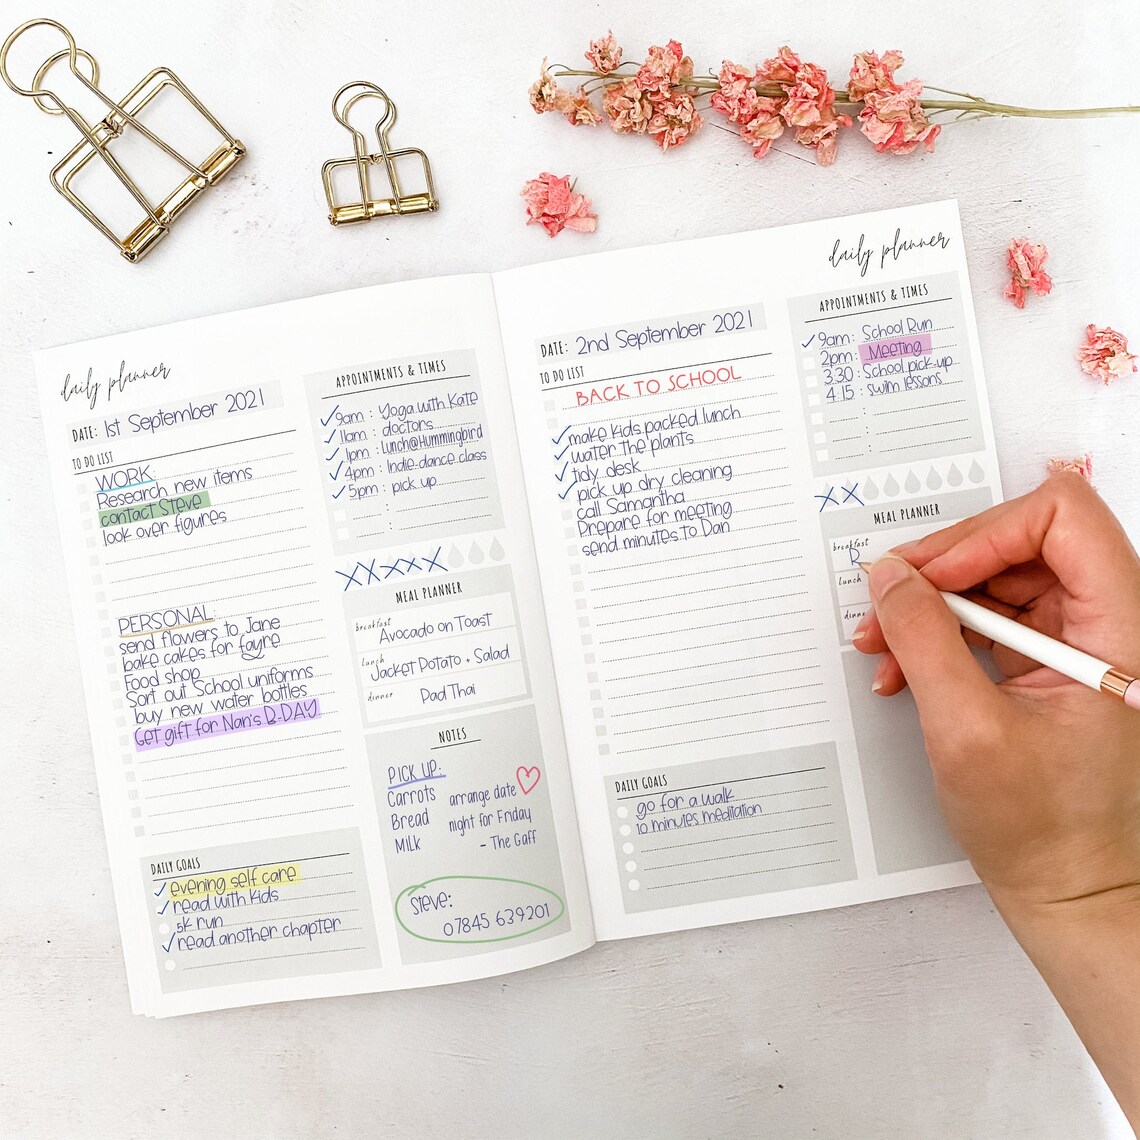 daily planner
DATE: 1st September 2021
TO DO LIST
WORK:
Research new items
contact Steve
look over figures
PERSONAL:
send flowers to Jane
bake cakes for fayre
Food shop
Sort out School uniforms
buy new water bottles
Get gift for Nan's B-DAY
DAILY GOALS
evening self care
read with kids
5k run
read another chapter
APPOINTMENTS & TIMES
9am : Yoga with Kate
11am : doctors
1pm : Lunch@Hummingbird
4pm : Indie-dance class
5pm : pick up
MEAL PLANNER
breakfast
Avocado on Toast
lunch
Jacket Potato + Salad
dinner
Pad Thai
NOTES
PICK UP:
Carrots
Bread
Milk
arrange date
night for Friday
- The Gaff
Steve:
07845 639201
daily planner
DATE: 2nd September 2021
TO DO LIST
BACK TO SCHOOL
make kids packed lunch
water the plants
tidy desk
pick up dry cleaning
call Samantha
Prepare for meeting
send minutes to Dan
DAILY GOALS
go for a walk
10 minutes meditation
APPOINTMENTS & TIMES
9am : School Run
2pm : Meeting
3:30 : School pick-up
4.15 : swim lessons
MEAL PLANNER
breakfast
R
lunch
dinne